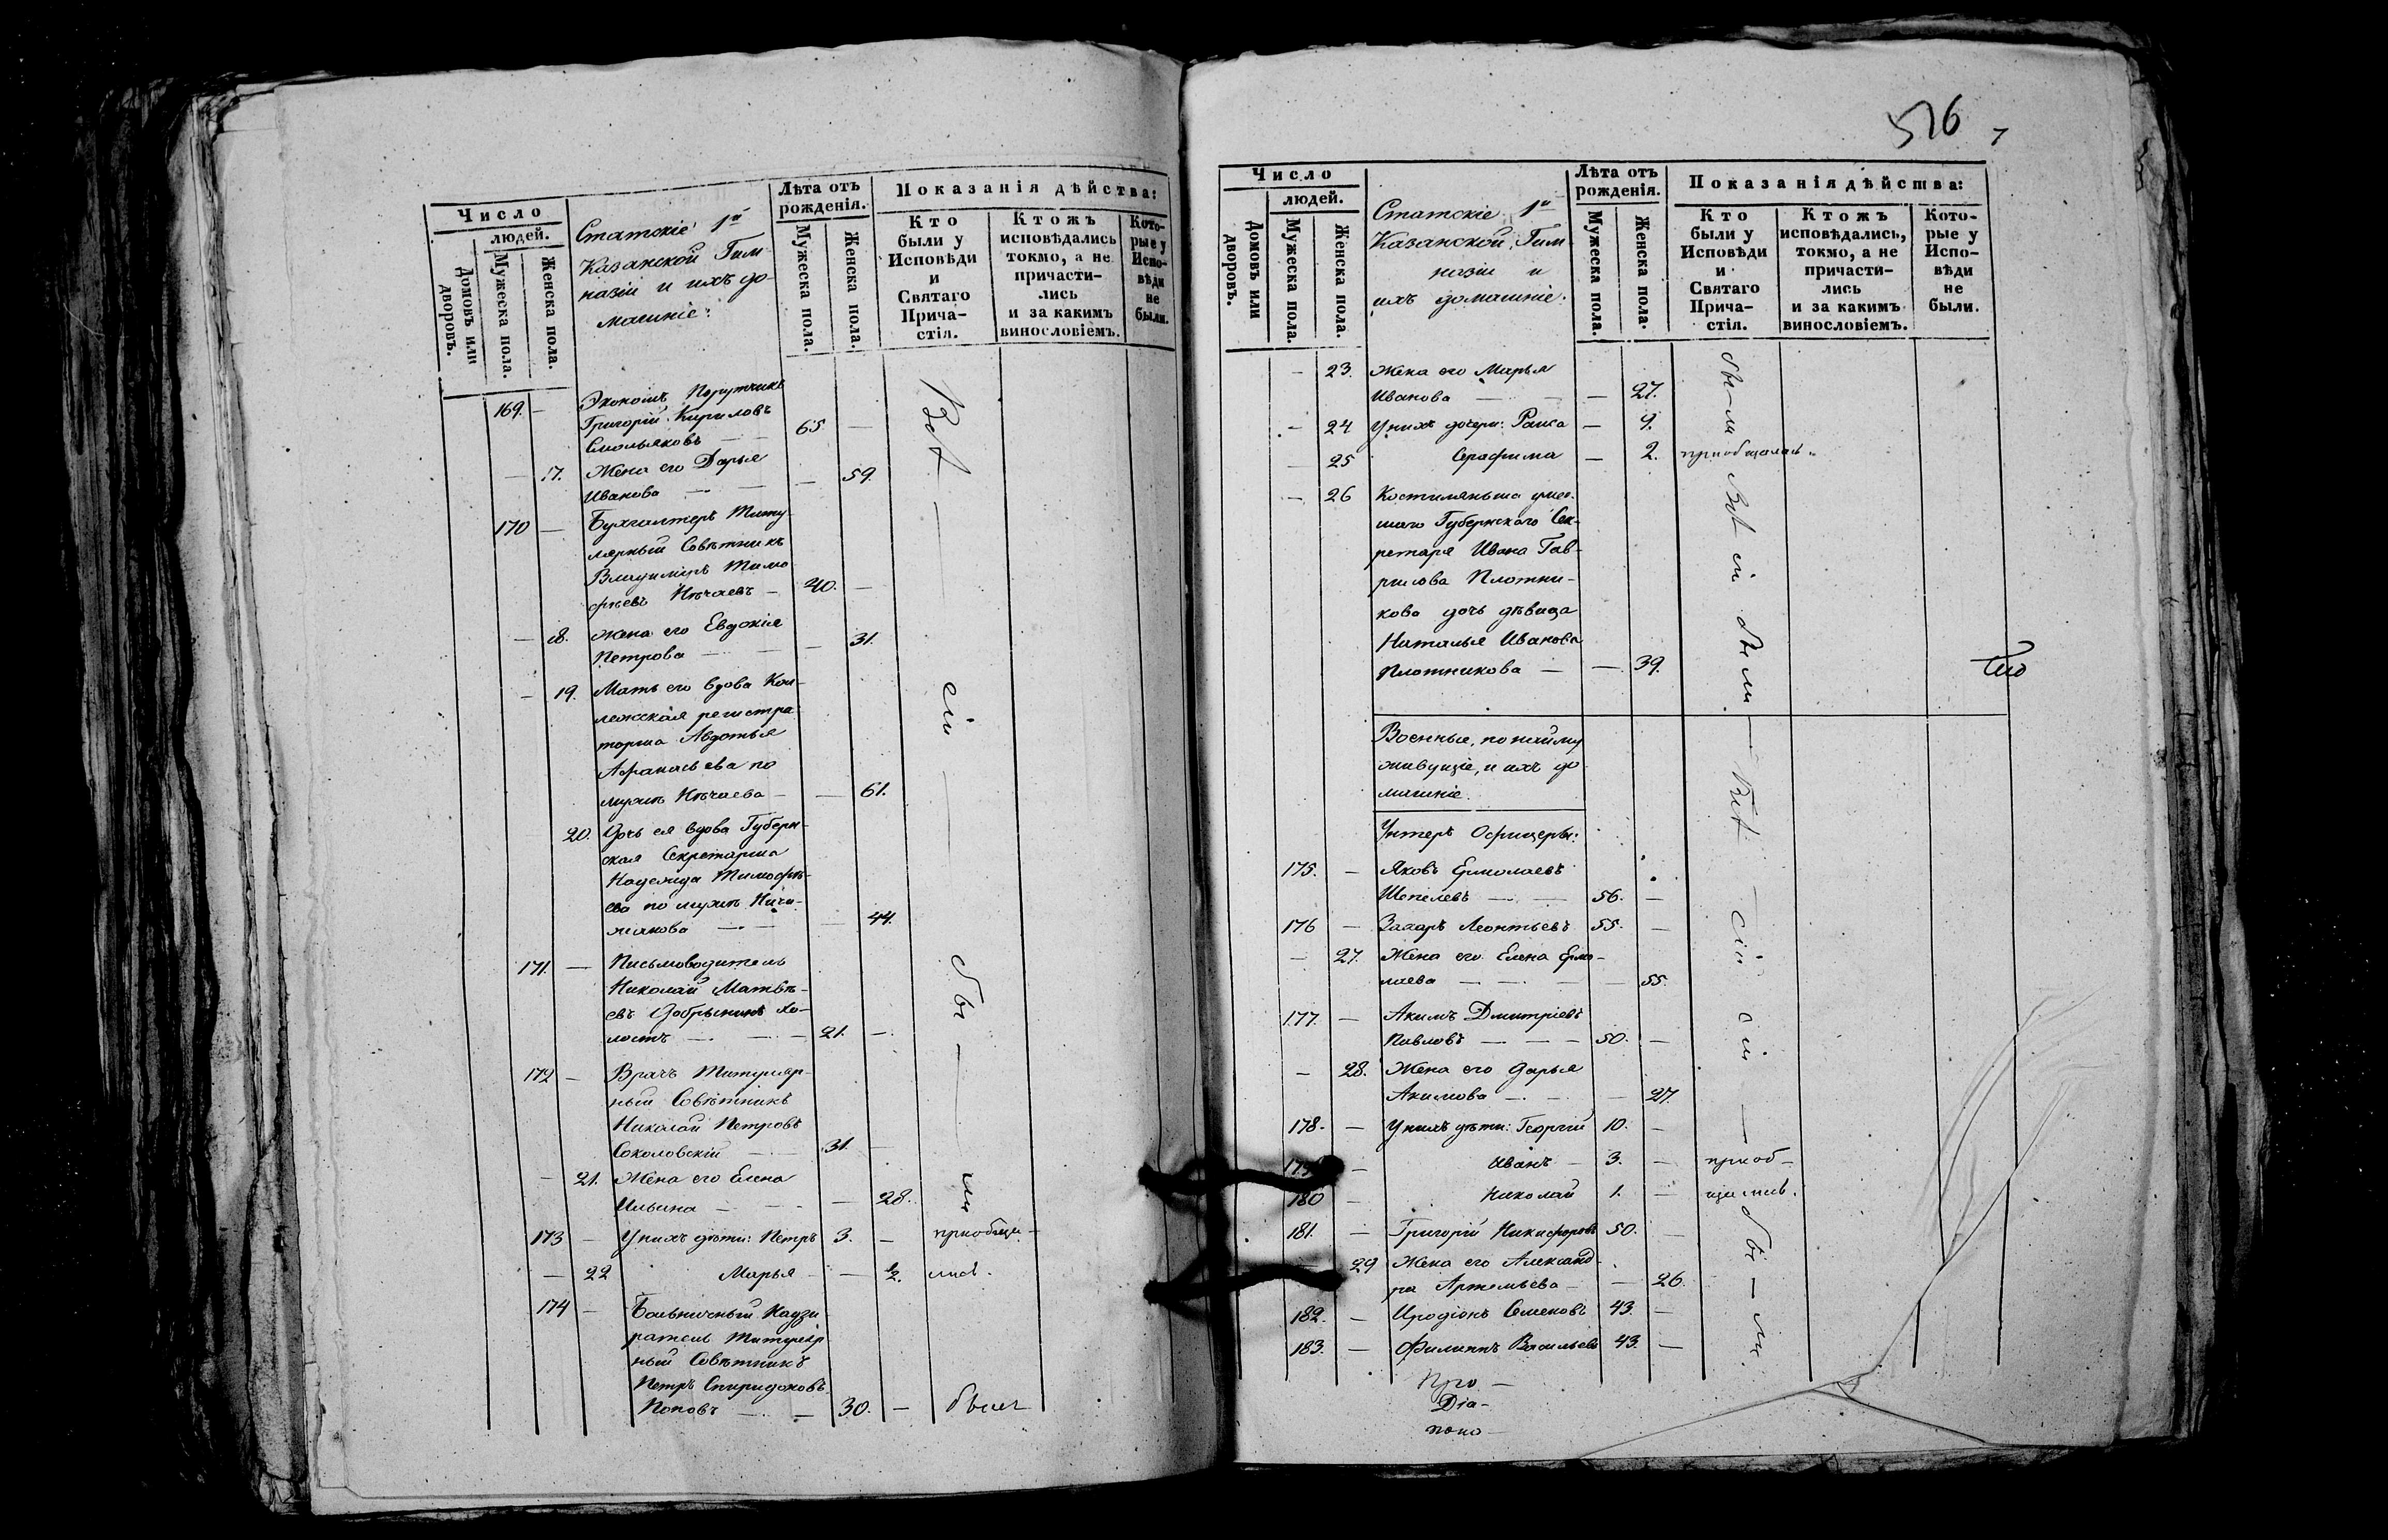 Число
людей.
Домовъ или дворовъ.
Мужеска пола.
Женска пола.
Статскіе 1й
Казанской Гим
назіи и ихъ до-
машніе:
Лѣта отъ
рожденія.
Мужеска пола.
Женска пола.
Показанія дѣйства:
Кто
были у
Исповѣди
и
Святаго
Прича-
стія.
Ктожъ
исповѣдались
токмо, а не
причасти-
лись
и за какимъ
винословіемъ.
Кото-
рые у
Испо-
вѣди
не
были.
169. — Экономъ Порутчикъ
Григорій Кириловъ
Смольяковъ — — 65 —
— 17. Жена его Дарья
Иванова — — — 59.
170 — Бухгалтеръ Титу-
лярный Совѣтникъ
Владимиръ Тимо
фѣевъ Нѣчаевъ — 40. —
— 18. Жена его Евдокія
Петрова — — — 31.
— 19. Мать его вдова Кол-
лежская регистра
торша Авдотья
Афанасьева по
мужѣ Нѣчаева — — 61.
20. Дочь ея вдова Губерн-
ская Секретарша
Надежда Тимофѣ-
ева по мужѣ
— — — 44.
171. — Письмоводитель
Николай Матвѣ-
евъ Добрынинъ хо-
лостъ — — — 21. —
172 — Врачъ Титуляр-
ный Совѣтникъ
Николай Петровъ
Соколовскій — — 31. —
— 21. Жена его Елена
Ильина — — — 28.
173 — У нихъ дѣти: Петръ 3. — приобщи-
— 22 Марья — — ½. лись.
174 — Больничный Надзи
ратель Титуляр
ный Совѣтникъ
Петръ Спиридоновъ
Поповъ — — 30. — былъ
Всѣ — сіи — бы — ли
576 7
Число
людей.
Домовъ или дворовъ.
Мужеска пола.
Женска пола.
Статскіе 1й
Казанской Гим
назіи и
ихъ домашніе.
Лѣта отъ
рожденія.
Мужеска пола.
Женска пола.
Показанія дѣйства:
Кто
были у
Исповѣди
и
Святаго
Прича-
стія.
Ктожъ
исповѣдались,
токмо, а не
причасти-
лись
и за какимъ
винословіемъ.
Кото-
рые у
Испо-
вѣди
не
были.
— 23. Жена его Марья
Иванова — — — 27.
бы-ли
— 24 У нихъ дочери: Раиса — 9.
— 25 Серафима — 2. приобщалась.
— 26 Костилянша умер.
шаго Губернскаго Сек-
ретаря Ивана Гав-
рилова Плотни-
кова дочь дѣвица
Наталья Иванова
Плотникова — — 39.
Всѣ сіи были
Военные, по найму
живущіе, и ихъ до
машніе.
Унтеръ Офицеры:
175. — Яковъ Ермолаевъ
Шепелевъ — — 56. —
176 — Захаръ Леонтьевъ 55. —
— 27. Жена его Елена Ермо-
лаева — — — 55.
177. — Акимъ Дмитріевъ
Павловъ — — — 50. —
— 28. Жена его Дарья
Акимова — — — 27.
178. — У нихъ дѣти: Георгій 10. —
179 — Иванъ — 3. — приоб-
180 — Николай 1. — щались.
181. — Григорій Никифоровъ 50. —
— 29 Жена его Александ-
ра Артемьева — — 26.
182. — Иродіонъ Семеновъ 43. —
183. — Филиппъ Васильевъ 43. —
Всѣ — сіи
сіи — бы — ли.
Про-
Діа-
поно-